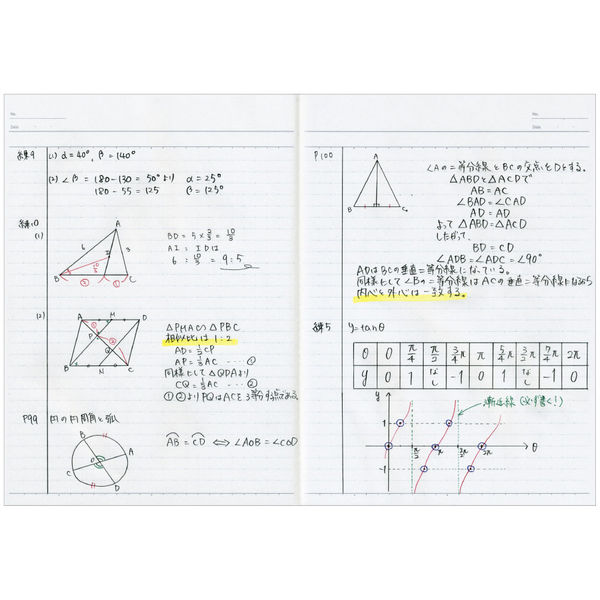 No.
Date
練9 (1) α=40°, β=140°
(2) ∠β = 180-130 = 50°より α=25°
180-55=125 β=125°
練10
(1)
A
6
3
I
B
D
C
② ①
BD = 5×2/3 = 10/3
AI : IDは
6 : 10/3 = 9:5
(2)
A M D
P
Q
B N C
△PMA∽△PBC
相似比は 1:2
AP=1/3AC ‥‥ ①
同様にして△QDAより
CQ=1/3AC ‥‥ ②
①②よりPQはACを3等分する点である
P99 円の円周角と弧
A
B
C
D
O
AB = CD ⇔ ∠AOB = ∠COD
No.
Date
P100
A
B
C
∠Aの二等分線とBCの交点をDとする。
△ABDと△ACDで
AB = AC
∠BAD = ∠CAD
AD = AD
よって △ABD=△ACD
したがって、
BD = CD
∠ADB = ∠ADC = ∠90°
ADはBCの垂直二等分線になっている。
同様にして∠Bの二等分線はACの垂直二等分線になるから
内心と外心は一致する。
練5 y=tanθ
θ 0 π/4 π/2 3/4π π 5/4π 3/2π 7/4π 2π
y 0 1 なし -1 0 1 なし -1 0
漸近線 (必ず書く!)
y
1
-1
π/2 π 3/2π 2π θ